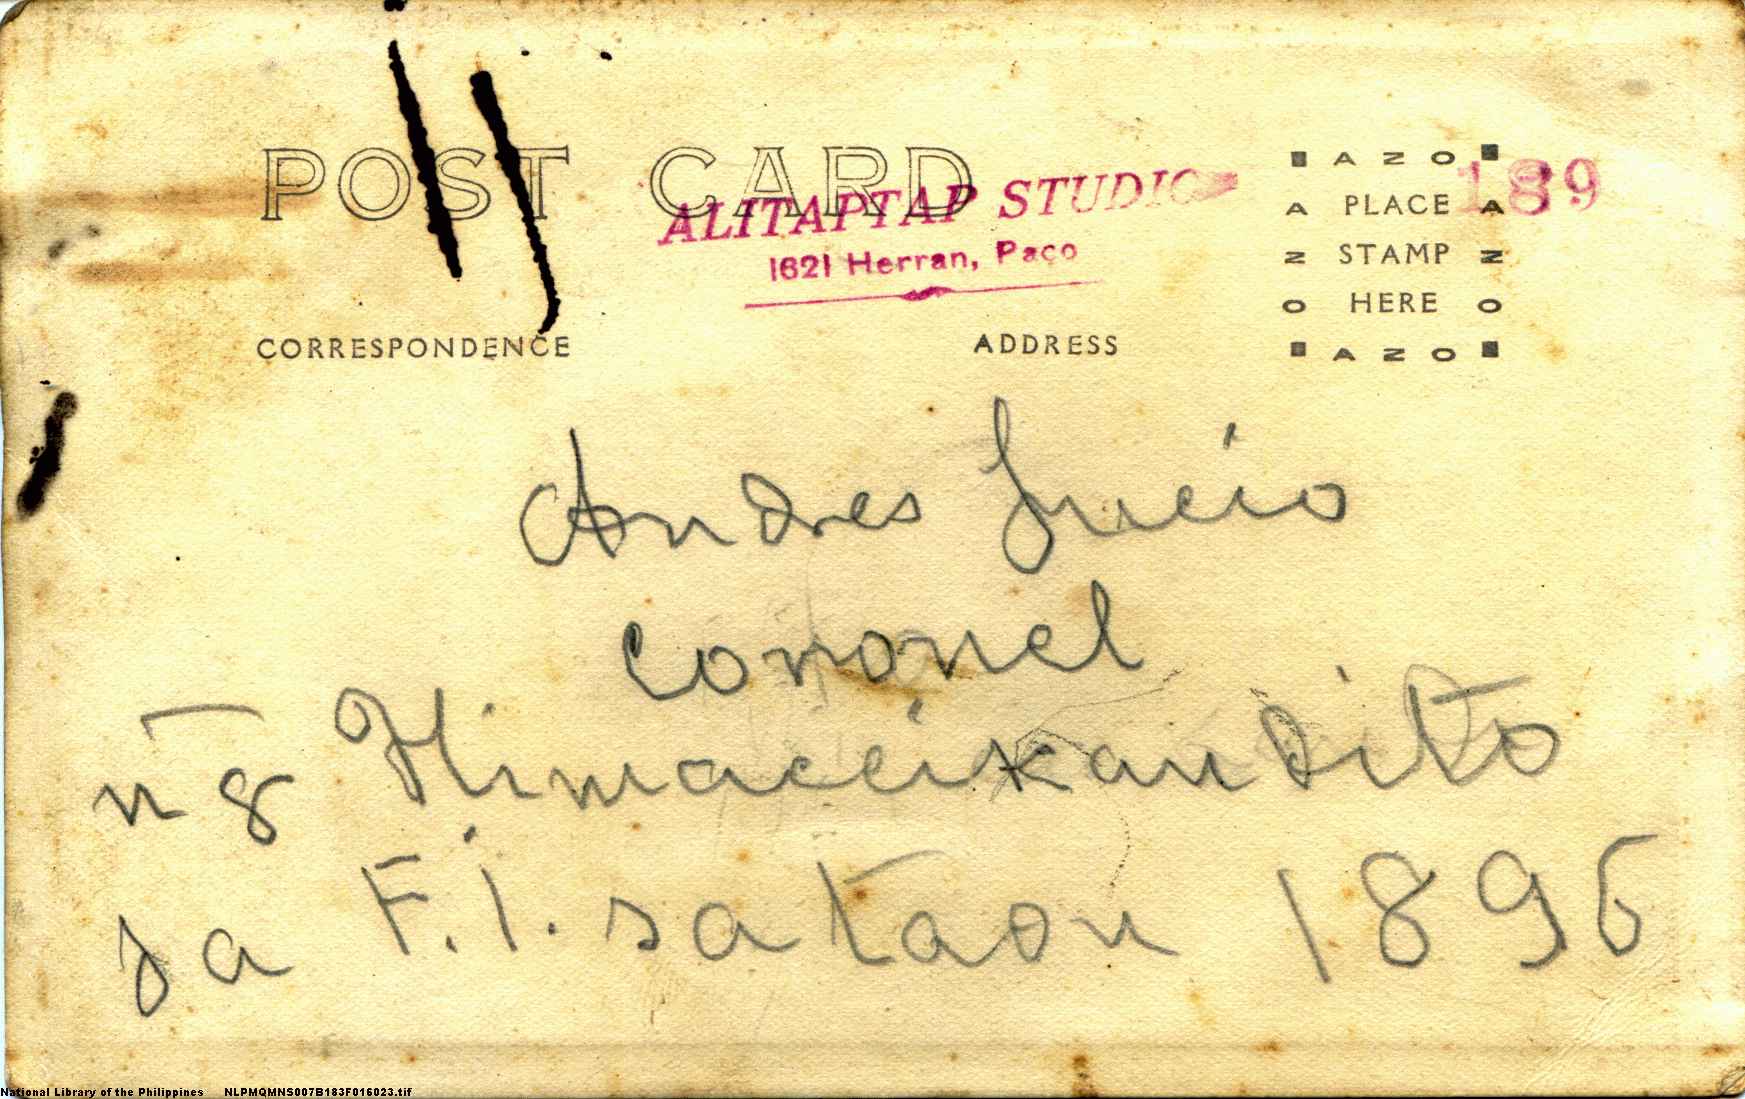 POST CARD
ALITAPTAP STUDIO
1621 Herran, Paco
189
AZO
A PLACE A
Z STAMP Z
O HERE O
AZO
CORRESPONDENCE
ADDRESS
Andres Lucio
Coronel
ng
sa F.I. sataon 1896
National Library of the Philippines NLPMQMNS007B183F016023.tif